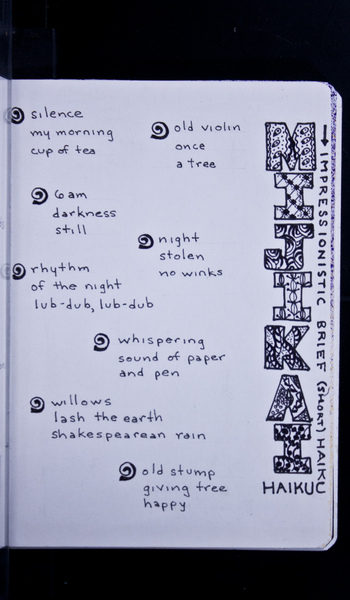 silence
my morning
cup of tea
old violin
once
a tree
6am
darkness
still
night
stolen
no winks
rhythm
of the night
lub-dub, lub-dub
whispering
sound of paper
and pen
willows
lash the earth
shakespearean rain
old stump
giving tree
happy
MIJIKAI
HAIKUC
→IMPRESSIONISTIC BRIEF (SHORT) HAIKU